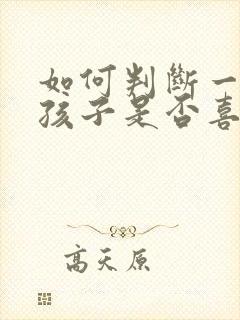 如何判斷一
孩子是否喜
高天原